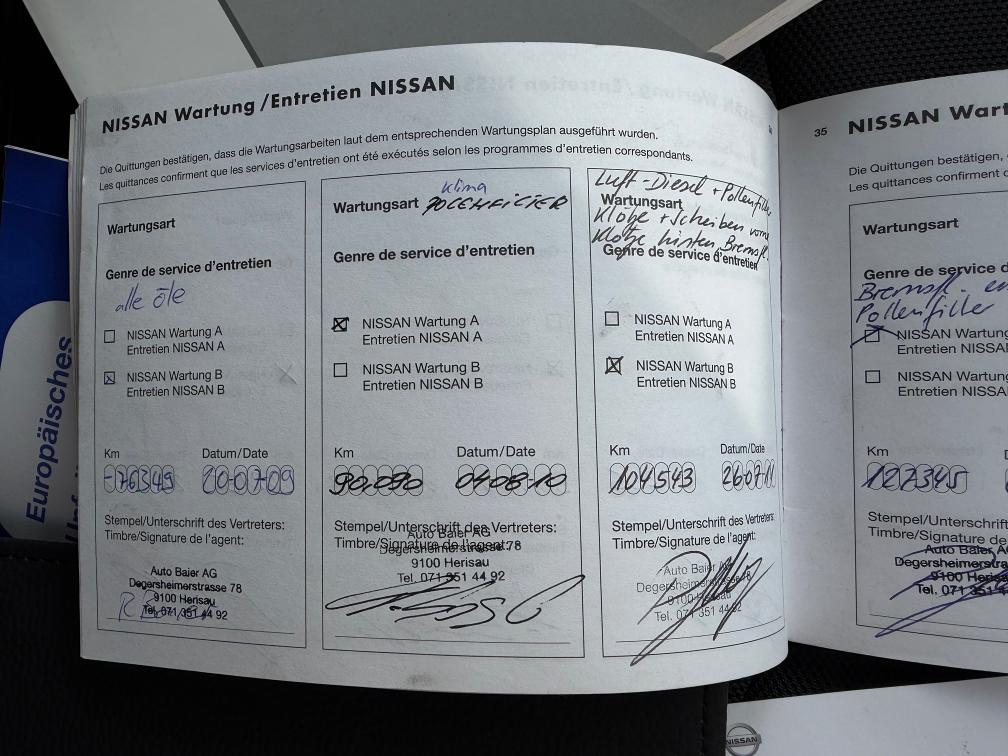 NISSAN Wartung /Entretien NISSAN
Die Quittungen bestätigen, dass die Wartungsarbeiten laut dem entsprechenden Wartungsplan ausgeführt wurden.
Les quittances confirment que les services d'entretien ont été exécutés selon les programmes d'entretien correspondants.
Wartungsart
Genre de service d'entretien
alle öle
NISSAN Wartung A
Entretien NISSAN A
NISSAN Wartung B
Entretien NISSAN B
Km Datum/Date
-76349 20-07-09
Stempel/Unterschrift des Vertreters:
Timbre/Signature de l'agent:
Auto Baier AG
Degersheimerstrasse 78
9100 Herisau
Tel. 071 351 44 92
Klima
Wartungsart
Genre de service d'entretien
NISSAN Wartung A
Entretien NISSAN A
NISSAN Wartung B
Entretien NISSAN B
Km Datum/Date
90.090 04-08-10
Stempel/Unterschrift des Vertreters:
Timbre/Signature de l'agent:
Auto Baier AG
Degersheimerstrasse 78
9100 Herisau
Tel. 071 351 44 92
Luft-Diesel + Pollenfilter
Wartungsart
Klötze + Scheiben vorne
Klötze hinten Bremsfl.
Genre de service d'entretien
NISSAN Wartung A
Entretien NISSAN A
NISSAN Wartung B
Entretien NISSAN B
Km Datum/Date
104543 26-07-11
Stempel/Unterschrift des Vertreters:
Timbre/Signature de l'agent:
Auto Baier AG
Degersheimerstrasse 78
9100 Herisau
Tel. 071 351 44 92
35 NISSAN Wart
Die Quittungen bestätigen,
Les quittances confirment
Wartungsart
Genre de service d'entre
Bremsfl.
Pollenfilter
NISSAN Wartung
Entretien NISSA
NISSAN Wartung
Entretien NISSA
Km
127345
Stempel/Unterschrift de
Timbre/Signature de
Auto Baier A
Degersheimerstra
9100 Herisau
Tel. 071 351 4
Europäisches
NISSAN